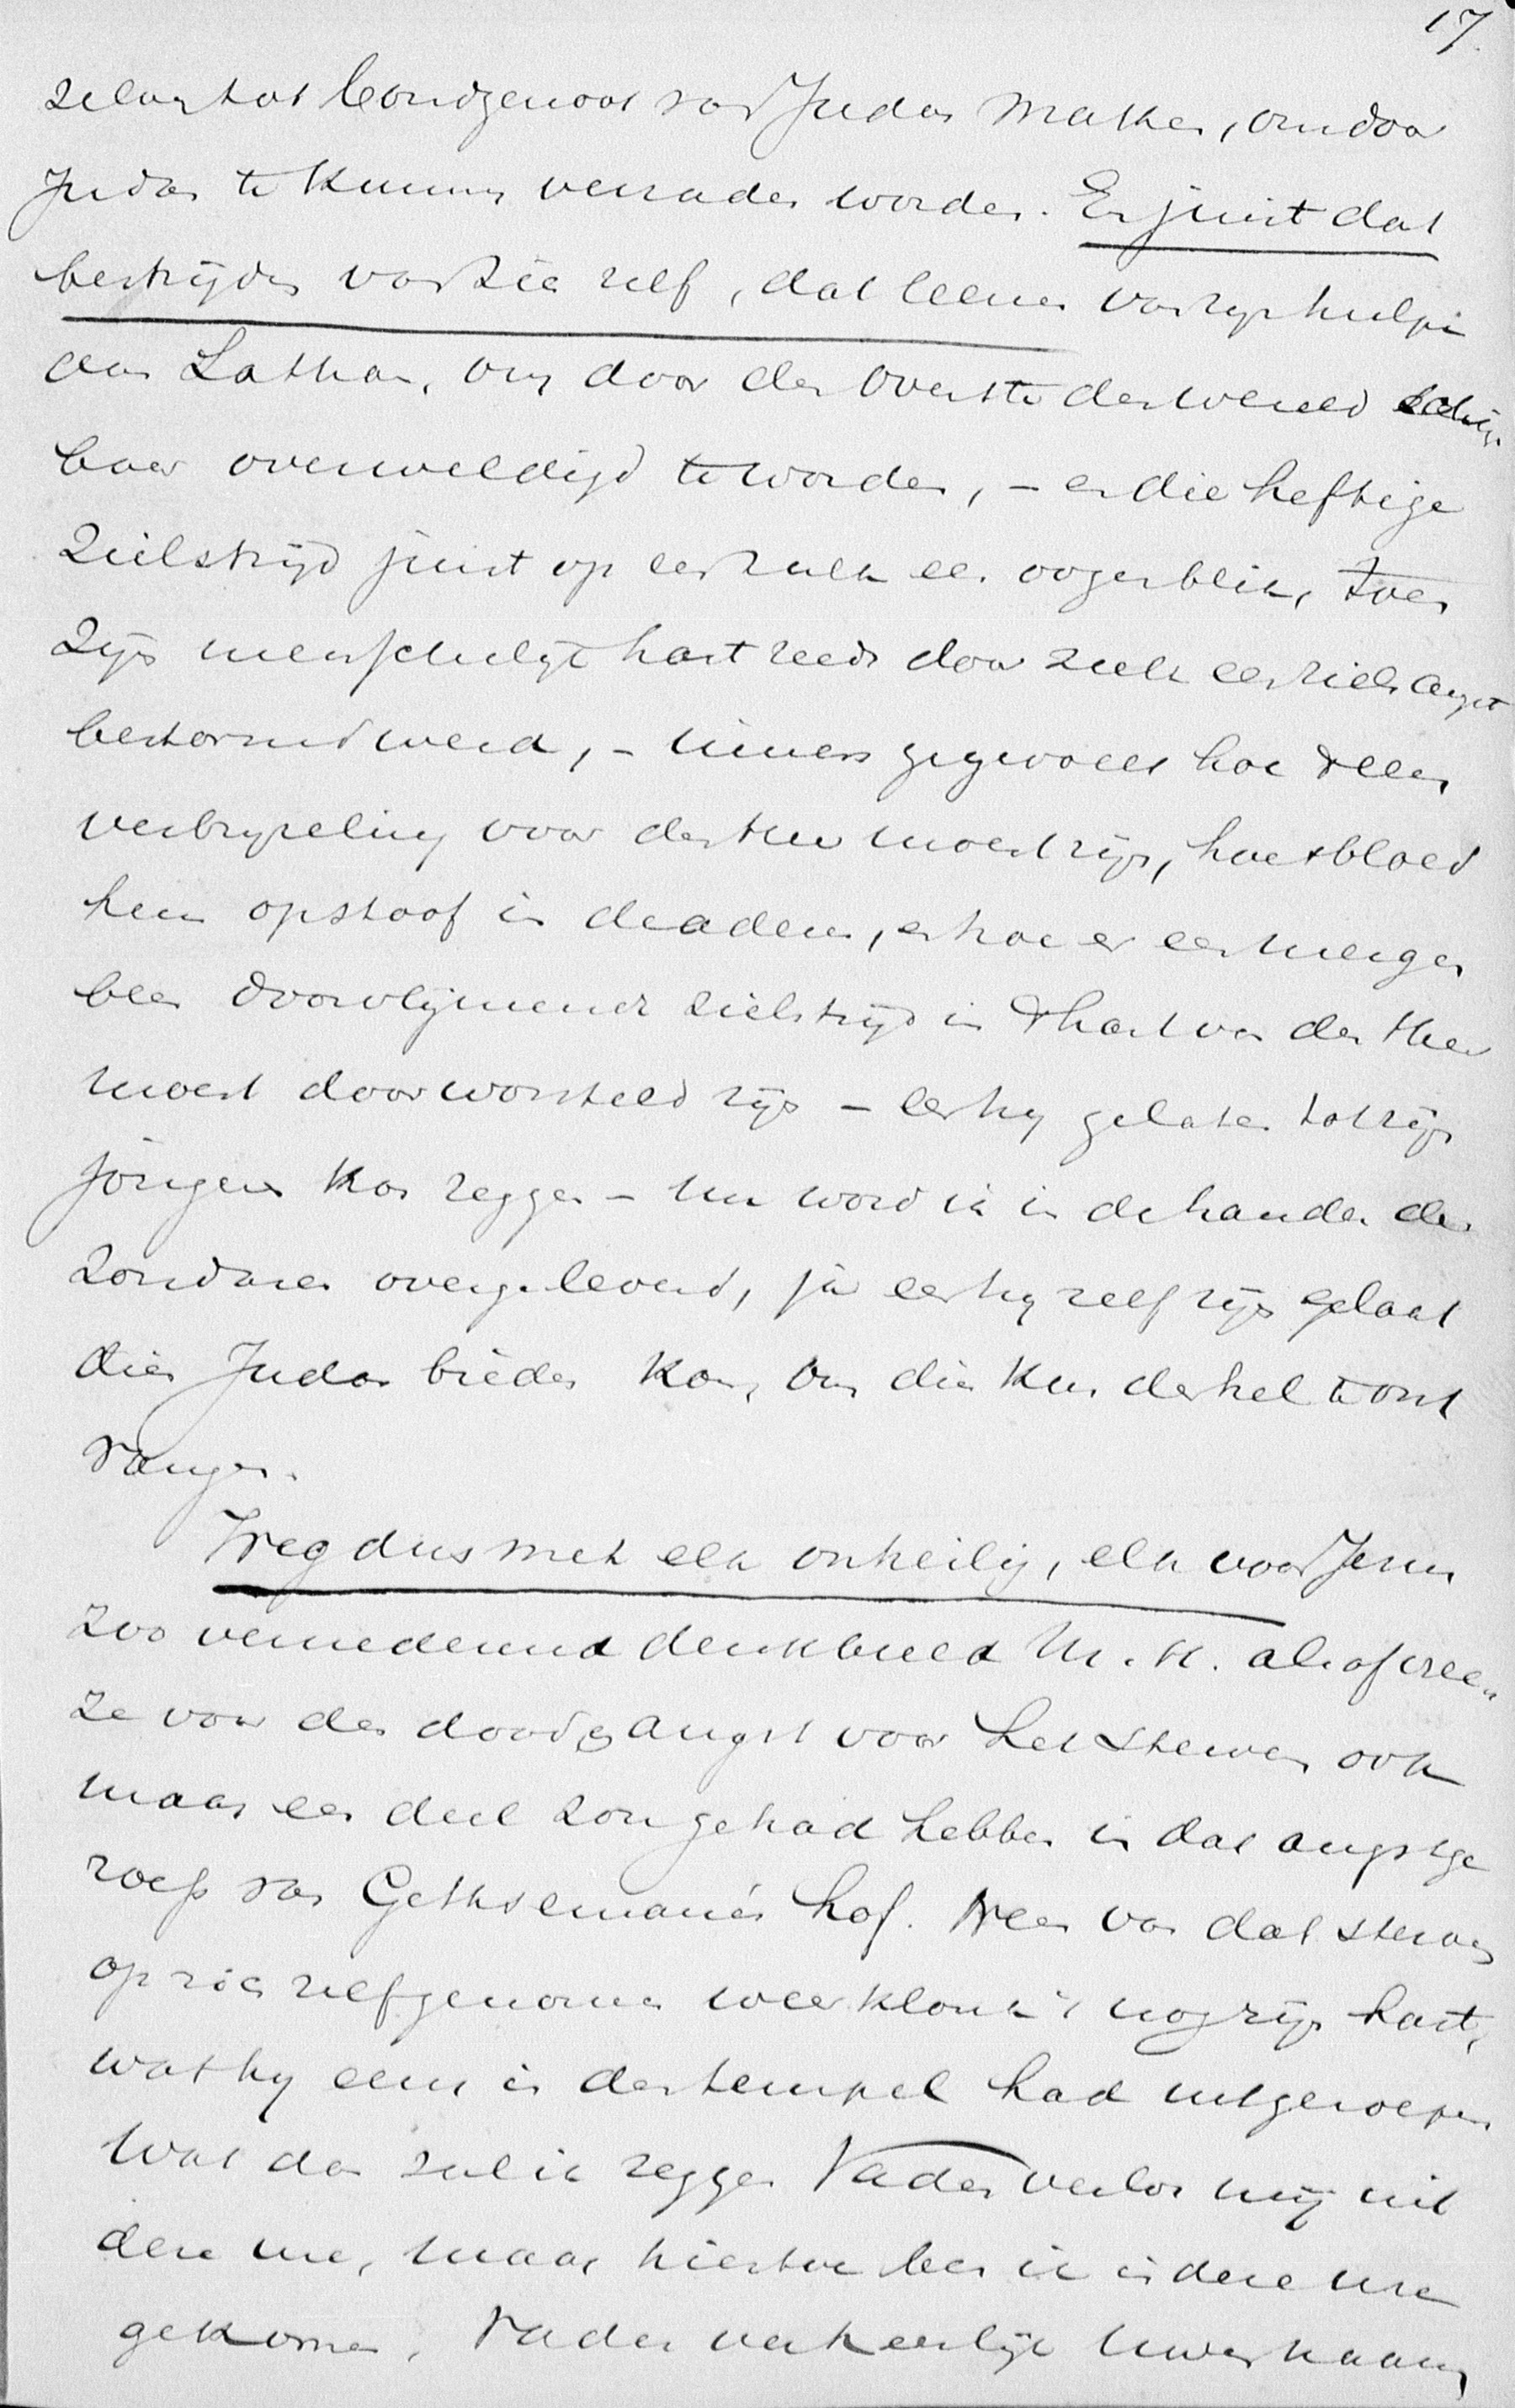 17.
zelven tot bondgenoot van Judas maken, om door
Judas te kunnen verraden worden. En juist dat
bestrijden van zich zelf, dat leenen van zijn hulp
aan Sathan, om door den overste der wereld schijn
baar overweldigd te worden, – en die heftige
Zielstrijd juist op een zulk een oogenblik, toen
Zijn menschelijk hart reeds door zulk een ziels angst
bestormd werd, –
verbrijzeling voor den Heer moest zijn, hoe 't bloed
hem opstoof in de aderen, en hoe er een
doorvlijmende zielstrijd in 't hart van den Heer
moest doorworsteld zijn – eer hij gelaten tot zijn
jongeren kon zeggen – nu word ik in de handen der
Zondaren overgeleverd, ja eer hij zelf zijn gelaat
dien Judas bieden kon, om dien kus der hel te ont
vangen.
Weg dus met elk onheilig, elk voor Jezus
zoo vernederend denkbeeld M. H. alsof vree
ze voor den dood of angst voor het sterven ook
maar een deel zou gehad hebben in dat angstge
roep van Gethsemané's hof. Neen van dat sterven
op zich zelf genomen weerklonk 't nog zijn hart,
wat hij eens in den tempel had uitgeroepen
Wat dan zal ik zeggen Vader verlos mij uit
deze ure, maar hiertoe ben ik in deze ure
gekomen, Vader verheerlijk Uwen naam,